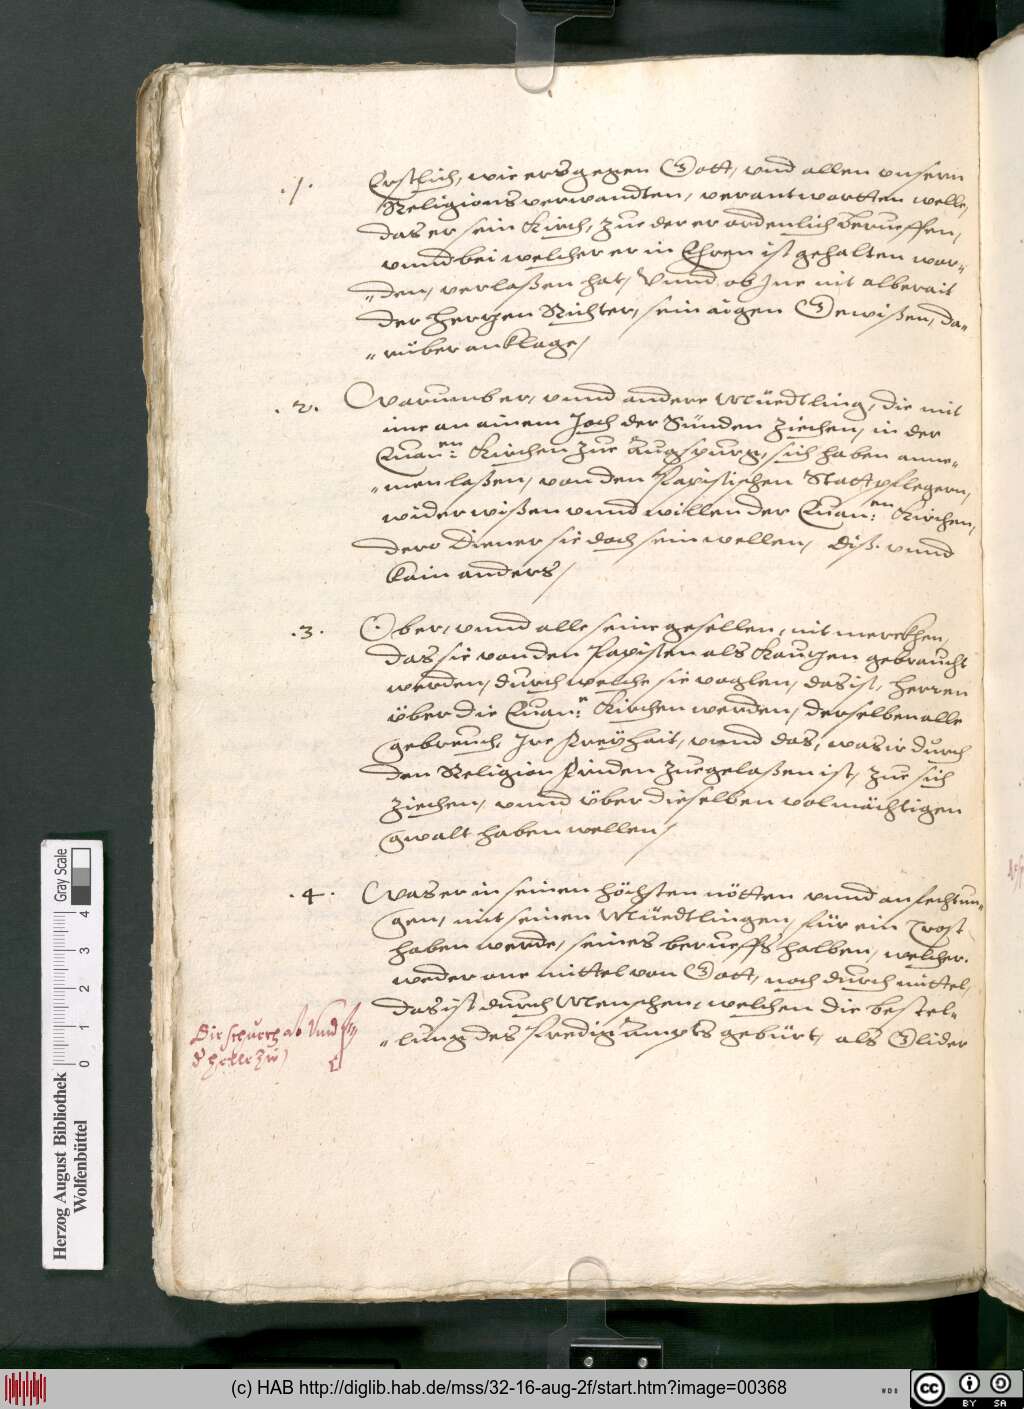 .1. Erstlich, wie ers gegen Gott, vnd allen vnsern
Religions verwandten, verantwortten welle,
das er sein Kirch, zue der er ordenlich berueffen,
vnnd bei welcher er in Ehren ist gehalten wor„
„den, verlaßen hat, Vnnd ob Jne nit alberait
der Herrzen Richter, sein aigen Gewißen, da„
„rüber anklage,
.2. Warumb er, vnnd andere Müedtling, die mit
ime an ainem Joch der Sünden ziechen, in der
Euan:en Kirchen zue Augspurg, sich haben anne„
„men laßen, von den Papistischen Stattpflegern,
wider wißen vnnd willen der Euan:en Kirchen,
dero Diener sie doch sein wellen, diß. vnnd
kain anders,
.3. Ob er, vnnd alle seine gesellen, nit merckhen,
das sie von den Papisten als Kautzen gebraucht
werden, durch welche sie voglen, das ist, Herren
über die Euan:n Kirchen werden, derselben alle
gebreuch, Jre Freÿhait, vnnd das, was ir durch
den Religion Friden zuegelaßen ist, zue sich
ziechen, vnnd über dieselben volmächtigen
gwalt haben wellen,
.4. Was er in seinen höchsten nötten vnnd anfechtun„
gen, mit seinen Müedtlingen, für ein Trost
haben werde, seines berueffs halben, welcher.
weder one mittel von Gott, noch durch mittel,
das ist durch Menschen, welchen die bestel„
„lung des Predig Ampts gebürt, als Glider
Gray Scale
4 3 2 1 0
Herzog August Bibliothek
Wolfenbüttel
(c) HAB http://diglib.hab.de/mss/32-16-aug-2f/start.htm?image=00368
WDB
CC BY SA